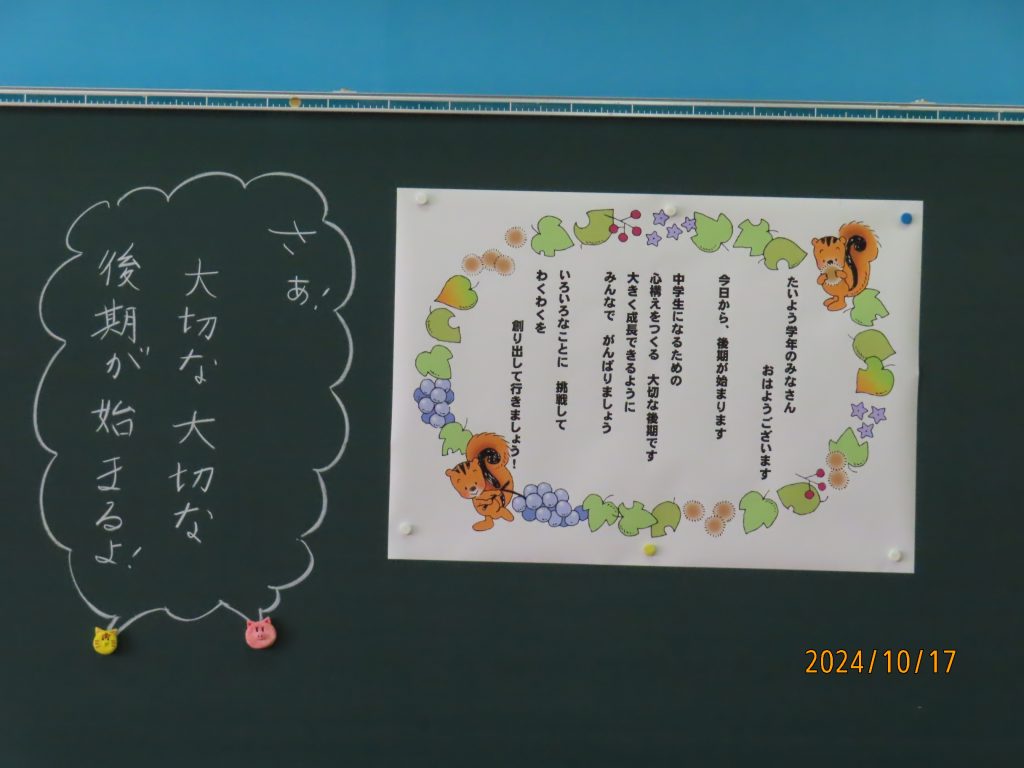 たいよう学年のみなさん
おはようございます
今日から、後期が始まります
中学生になるための
心構えをつくる　大切な後期です
大きく成長できるように
みんなで　がんばりましょう
いろいろなことに　挑戦して
わくわくを
創り出して行きましょう！
さぁ！
大切な大切な
後期が始まるよ！
2024/10/17